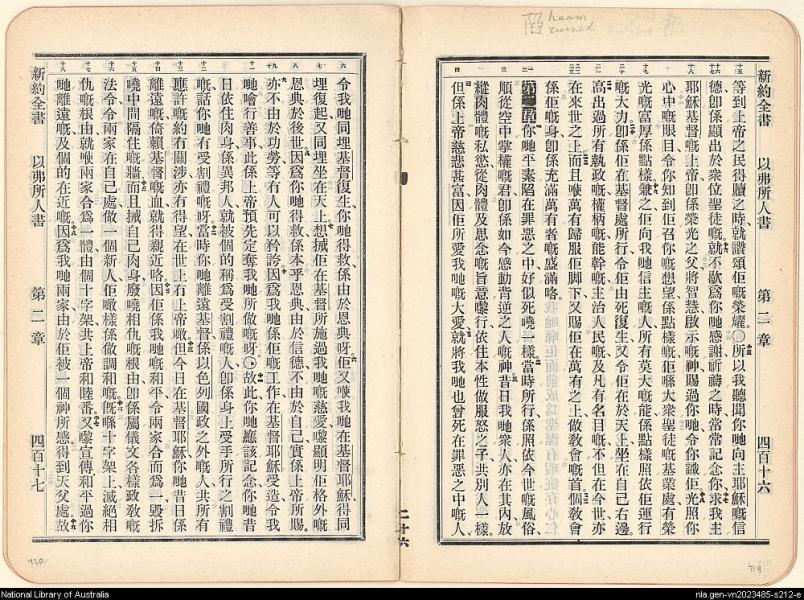 陷 haam
ruined
新約全書 以弗所人書 第二章 四百十六
等到上帝之民得贖之時就讚頌佢嘅榮耀○所以我聽聞你哋向主耶穌嘅信
德卽係顯出於衆位聖徒嘅就不歇爲你哋感謝祈禱之時常常記念你求我主
耶穌基督嘅上帝卽係榮光之父將智慧啟示嘅神賜過你哋令你識佢光照你
心中嘅眼目令你知到佢召你嘅想望係點樣嘅佢喺大衆聖徒嘅基業處有榮
光嘅富厚係點樣兼之佢向我哋信主嘅人所有莫大嘅能係點樣照依佢運行
嘅大力卽係佢在基督處所行令佢由死復生又令佢在於天上坐在自己右邊
高出過所有執政嘅權柄嘅能幹嘅主治人民嘅及凡有名目嘅不但在今世亦
在來世之上而且喺萬有歸服佢脚下又賜佢在萬有之上做敎會嘅首個敎會
係佢嘅身卽係充滿萬有者嘅盛滿咯
第二章 你哋平素陷在罪惡之中好似死嘵一樣當時所行係照依今世嘅風俗
順從空中掌權嘅君卽係如今感動背逆之人嘅神昔日我哋衆人亦在其內放
縱肉體嘅私慾從肉體及思念嘅旨意嚟行依住本性做服怒之子共別人一樣
但係上帝慈悲甚富因佢所愛我哋嘅大愛就將我哋也曾死在罪惡之中嘅人
二十六
令我哋同埋基督復生你哋得救係由於恩典呀佢又喺我哋在基督耶穌得同
埋復起又同埋坐在天上想搣佢在基督所施過我哋嘅慈愛嚟顯明佢格外嘅
恩典於後世因爲你哋得救係本乎恩典由於信德不由於自己實係上帝所賜
亦不由於功勞等有人可以矜誇因爲我哋係佢嘅工作在基督耶穌受造令我
哋噲行善事此係上帝預先定奪我哋所做嘅呀○故此你哋應該記念你哋昔
日依住肉身係異邦人就被個的稱爲受割禮嘅人卽係身上受手所行之割禮
嘅話你哋有受割禮嘅呀當時你哋離遠基督係以色列國政之外嘅人共所有
應許嘅約有關涉亦有得望在世上有上帝嗷但今日在基督耶穌你哋昔日係
離遠嘅倚賴基督嘅血就得親近咯因佢係我哋嘅和平令兩家合而爲一毀拆
嘵中間隔住嘅牆而且搣自己肉身廢嘵相仇嘅根由卽係屬儀文各樣政敎嘅
法令令兩家在自己處做一個新人佢噉樣係做調和嘅旣喺十字架上滅絕相
仇嘅根由就喺兩家合爲一體由個十字架共上帝和睦番又嚟宣傳和平過你
哋離遠嘅及個的在近嘅因爲我哋兩家由於佢被一個神所感得到天父處故
新約全書 以弗所人書 第二章 四百十七
420
419
National Library of Australia
nla.gen-vn2023485-s212-e